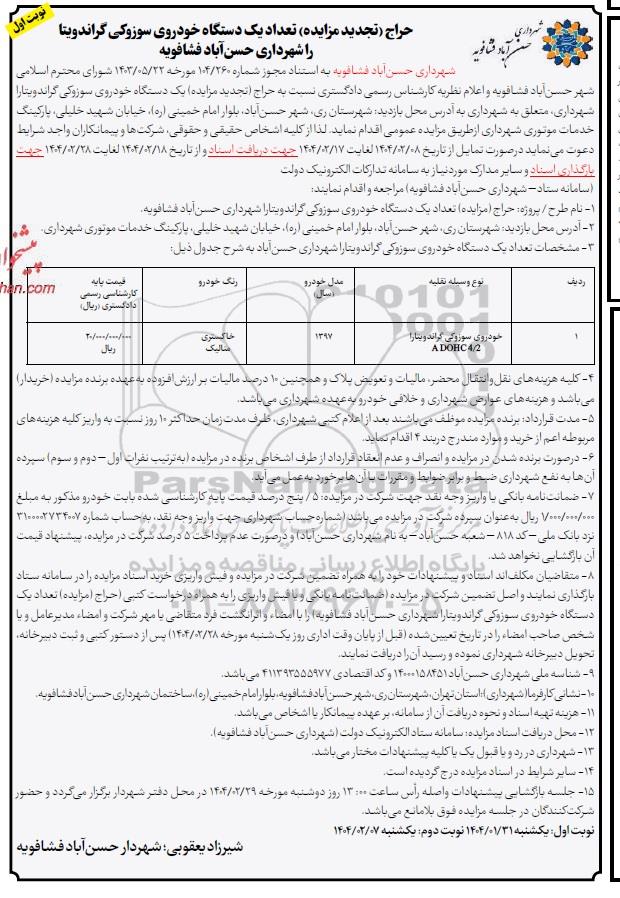 نوبت اول
شهرداری
حسن آباد فشافویه
حراج (تجدید مزایده) تعداد یک دستگاه خودروی سوزوکی گراندویتا
را شهرداری حسن‌آباد فشافویه
شهرداری حسن‌آباد فشافویه به استناد مجوز شماره ۱۰۴/۲۶۰ مورخه ۱۴۰۳/۰۵/۲۲ شورای محترم اسلامی
شهر حسن‌آباد فشافویه و اعلام نظریه کارشناس رسمی دادگستری نسبت به حراج (تجدید مزایده) یک دستگاه خودروی سوزوکی گراندویتارا
شهرداری، متعلق به شهرداری به آدرس محل بازدید: شهرستان ری، شهر حسن‌آباد، بلوار امام خمینی (ره)، خیابان شهید خلیلی، پارکینگ
خدمات موتوری شهرداری ازطریق مزایده عمومی اقدام نماید. لذا از کلیه اشخاص حقیقی و حقوقی، شرکت‌ها و پیمانکاران واجد شرایط
دعوت می‌نماید درصورت تمایل از تاریخ ۱۴۰۴/۰۲/۰۸ لغایت ۱۴۰۴/۰۲/۱۷ جهت دریافت اسناد و از تاریخ ۱۴۰۴/۰۲/۱۸ لغایت ۱۴۰۴/۰۲/۲۸ جهت
بارگذاری اسناد و سایر مدارک موردنیاز به سامانه تدارکات الکترونیک دولت
(سامانه ستاد – شهرداری حسن‌آباد فشافویه) مراجعه و اقدام نمایند:
۱- نام طرح / پروژه: حراج (مزایده) تعداد یک دستگاه خودروی سوزوکی گراندویتارا شهرداری حسن‌آباد فشافویه.
۲- آدرس محل بازدید: شهرستان ری، شهر حسن‌آباد، بلوار امام خمینی (ره)، خیابان شهید خلیلی، پارکینگ خدمات موتوری شهرداری.
۳- مشخصات تعداد یک دستگاه خودروی سوزوکی گراندویتارا شهرداری حسن‌آباد به شرح جدول ذیل:
ردیف نوع وسیله نقلیه مدل خودرو (سال) رنگ خودرو قیمت پایه کارشناسی رسمی دادگستری (ریال)
۱ خودروی سوزوکی گراندویتارا A DOHC 4/2 ۱۳۹۷ خاکستری متالیک ۲۰/۰۰۰/۰۰۰/۰۰۰ ریال
۴- کلیه هزینه‌های نقل‌وانتقال محضر، مالیات و تعویض پلاک و همچنین ۱۰ درصد مالیات بر ارزش افزوده به‌عهده برنده مزایده (خریدار)
می‌باشد و هزینه‌های عوارض شهرداری و خلافی خودرو به‌عهده شهرداری می‌باشد.
۵- مدت قرارداد: برنده مزایده موظف می‌باشند بعد از اعلام کتبی شهرداری، ظرف مدت زمان حداکثر ۱۰ روز نسبت به واریز کلیه هزینه‌های
مربوطه اعم از خرید و موارد مندرج دربند ۴ اقدام نماید.
۶- درصورت برنده شدن در مزایده و انصراف و عدم انعقاد قرارداد از طرف اشخاص برنده در مزایده (به‌ترتیب نفرات اول – دوم و سوم) سپرده
آن‌ها به نفع شهرداری ضبط و برابر ضوابط و مقررات با آن‌ها برخورد به‌عمل می‌آید.
۷- ضمانت‌نامه بانکی یا واریز وجه نقد جهت شرکت در مزایده: ۵ / پنج درصد قیمت پایه کارشناسی شده بابت خودرو مذکور به مبلغ
۱/۰۰۰/۰۰۰/۰۰۰ ریال به‌عنوان سپرده شرکت در مزایده می‌باشد (شماره حساب شهرداری جهت واریز وجه نقد، به‌حساب شماره ۳۱۰۰۰۰۲۷۳۴۰۰۷
نزد بانک ملی – کد ۸۱۸ – شعبه حسن‌آباد – به نام شهرداری حسن‌آباد) و درصورت عدم پرداخت ۵ درصد شرکت در مزایده، پیشنهاد قیمت
آن بازگشایی نخواهد شد.
۸- متقاضیان مکلف‌اند اسناد و پیشنهادات خود را به همراه تضمین شرکت در مزایده و فیش واریزی خرید اسناد مزایده را در سامانه ستاد
بارگذاری نمایند و اصل تضمین شرکت در مزایده (ضمانت‌نامه بانکی و یا فیش واریزی) را به همراه درخواست کتبی (حراج (مزایده) تعداد یک
دستگاه خودروی سوزوکی گراندویتارا شهرداری حسن‌آباد فشافویه) را با امضاء و اثرانگشت فرد متقاضی یا مهر شرکت و امضاء مدیرعامل و یا
شخص صاحب امضاء را در تاریخ تعیین‌شده (قبل از پایان وقت اداری روز یک‌شنبه مورخه ۱۴۰۴/۰۲/۲۸) پس از دستور کتبی و ثبت دبیرخانه،
تحویل دبیرخانه شهرداری نموده و رسید آن را دریافت نمایند.
۹- شناسه ملی شهرداری حسن‌آباد ۱۴۰۰۰۱۵۸۴۵۱ و کد اقتصادی ۴۱۱۳۹۳۵۵۵۹۷۷ می‌باشد.
۱۰- نشانی کارفرما (شهرداری): استان تهران، شهرستان ری، شهر حسن‌آباد فشافویه، بلوار امام خمینی (ره)، ساختمان شهرداری حسن‌آباد فشافویه.
۱۱- هزینه تهیه اسناد و نحوه دریافت آن از سامانه، بر عهده پیمانکار یا اشخاص می‌باشد.
۱۲- محل دریافت اسناد مزایده: سامانه ستاد الکترونیک دولت (شهرداری حسن‌آباد فشافویه).
۱۳- شهرداری در رد و یا قبول یک یا کلیه پیشنهادات مختار می‌باشد.
۱۴- سایر شرایط در اسناد مزایده درج گردیده است.
۱۵- جلسه بازگشایی پیشنهادات واصله رأس ساعت ۱۳:۰۰ روز دوشنبه مورخه ۱۴۰۴/۰۲/۲۹ در محل دفتر شهردار برگزار می‌گردد و حضور
شرکت‌کنندگان در جلسه مزایده فوق بلامانع می‌باشد.
نوبت اول: یکشنبه ۱۴۰۴/۰۱/۳۱ نوبت دوم: یکشنبه ۱۴۰۴/۰۲/۰۷
شیرزاد یعقوبی؛ شهردار حسن‌آباد فشافویه
پایگاه اطلاع رسانی مناقصه و مزایده